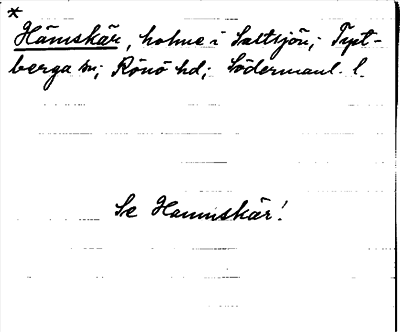 *
Hämskär, holme i Saltsjön; Tyst-
berga sn; Rönö hd; Södermanl. l.
Se Hamnskär!